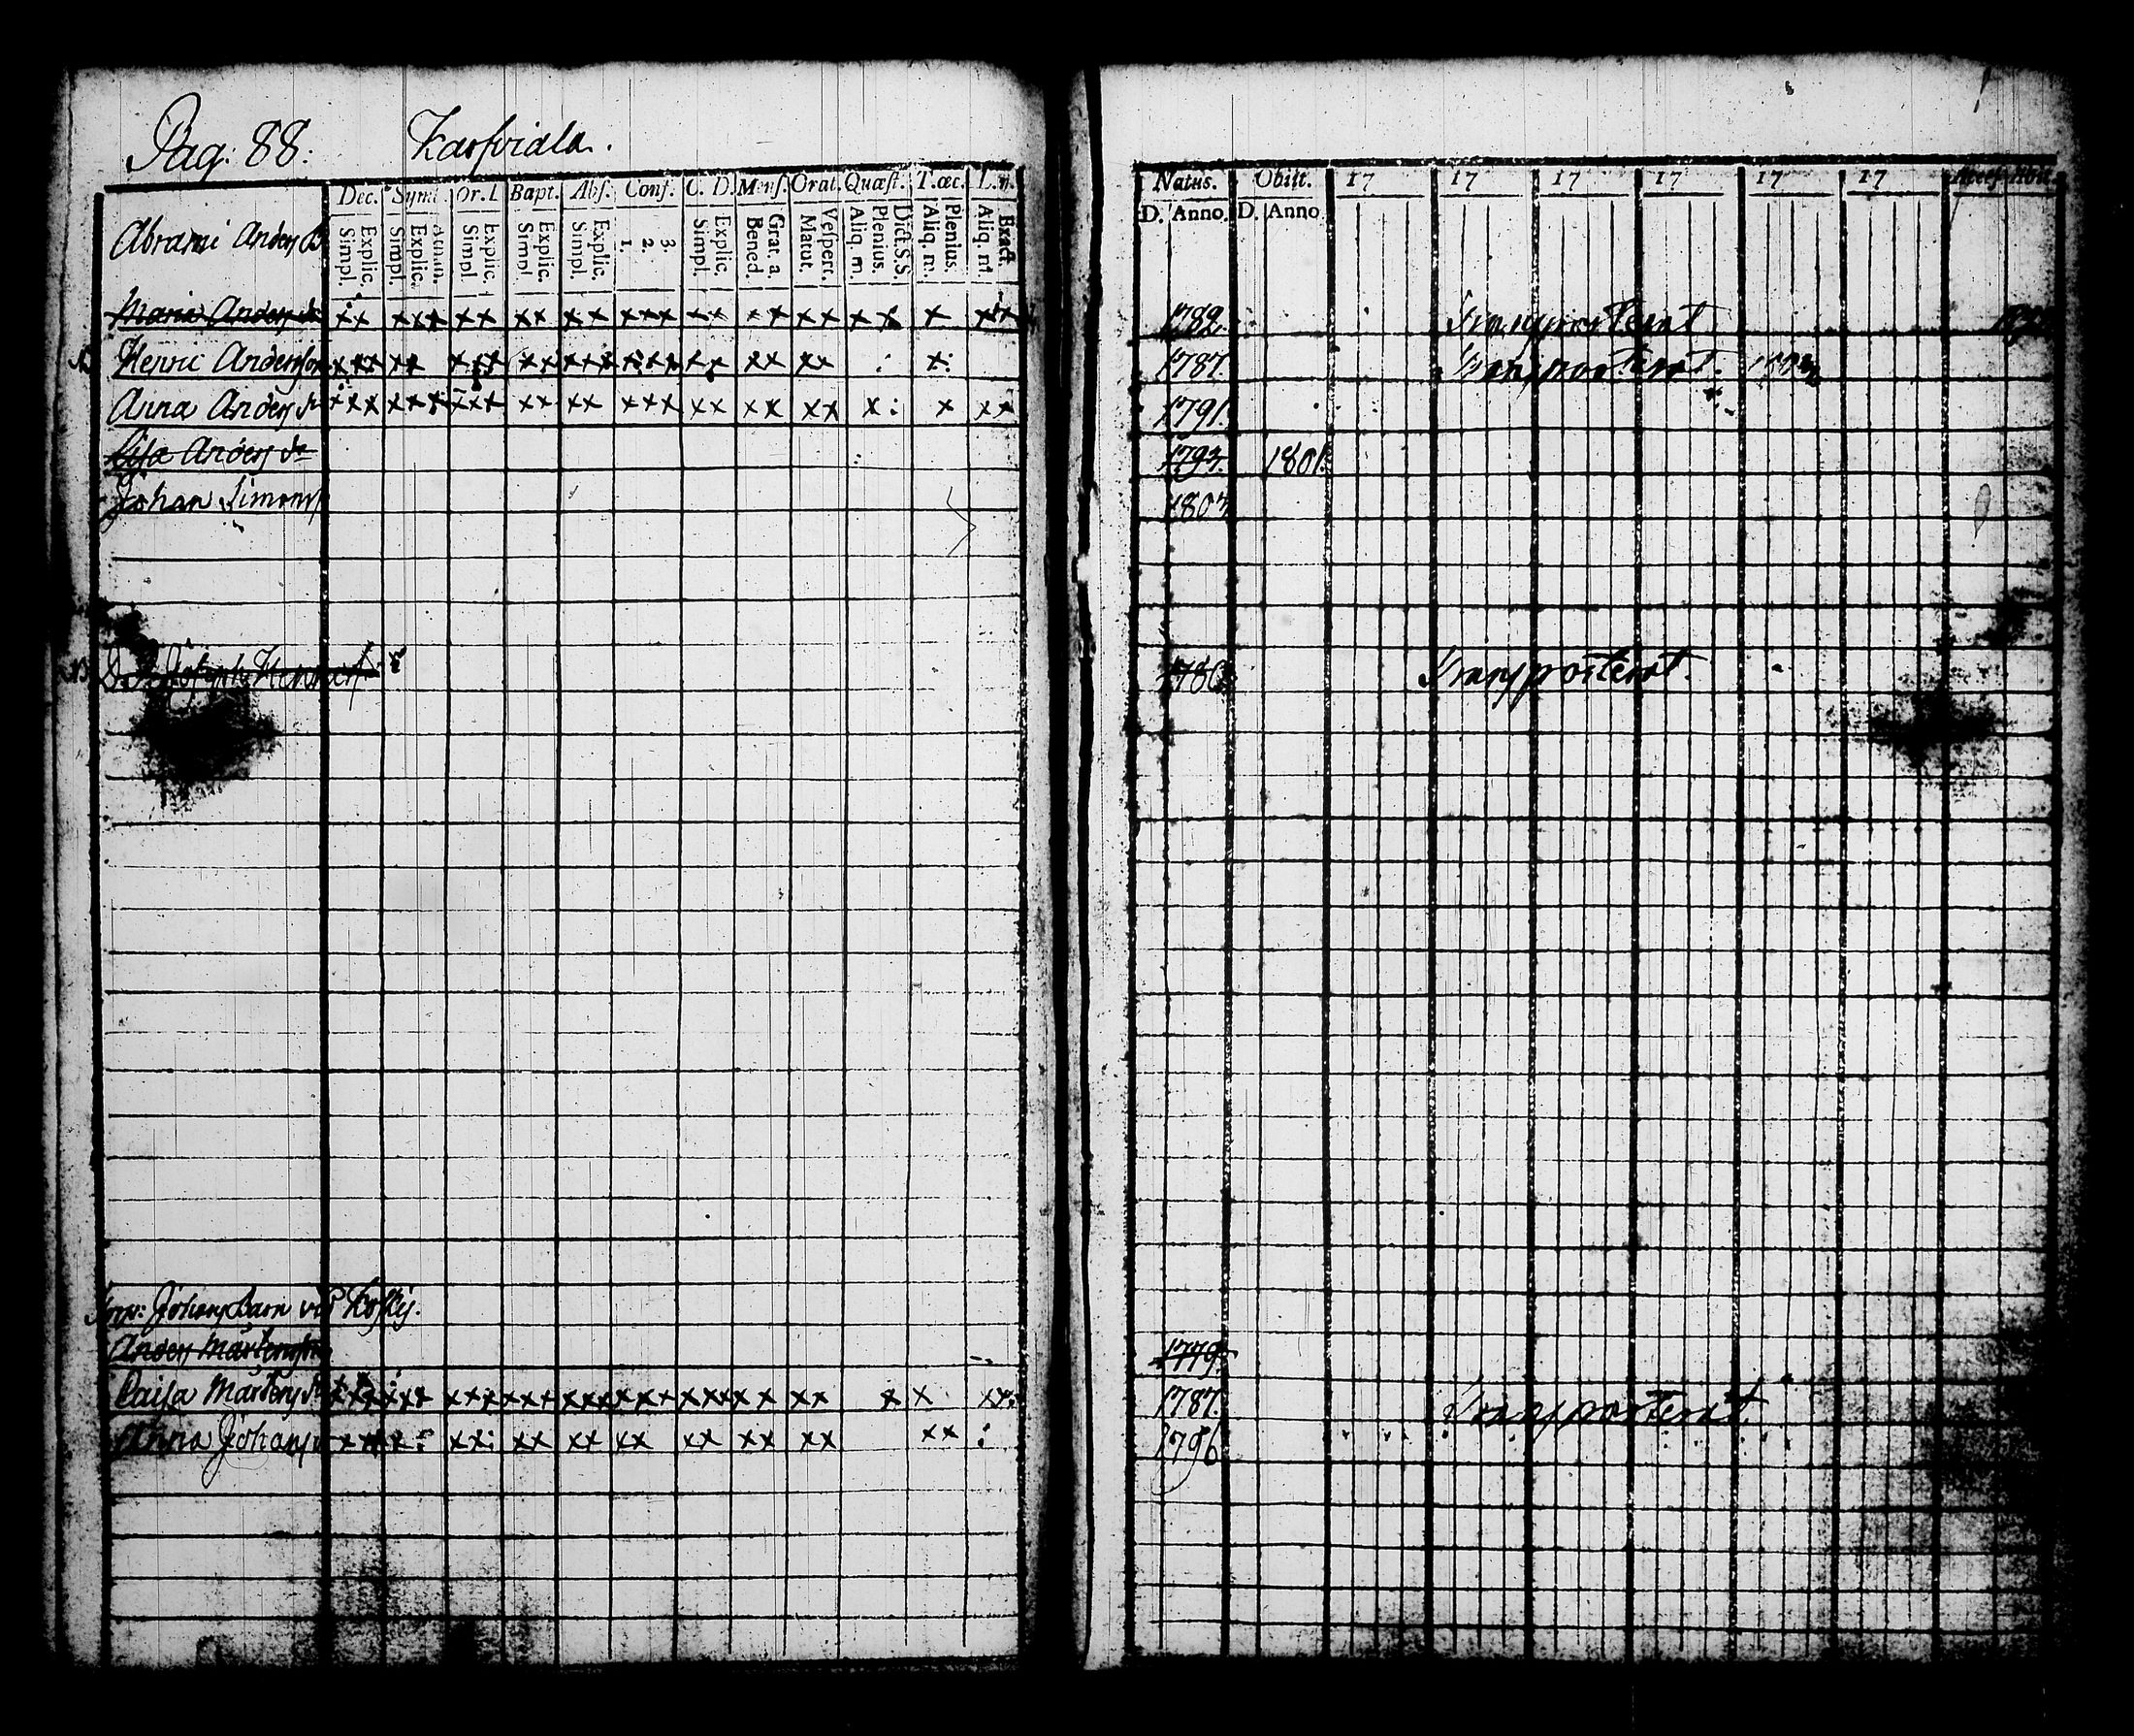 Pag: 88: Karsviala.
Dec. Symb. Or. D Bapt. Abs. Conf. C. D. Mens. Orat. Quæst. T. œc. L. n.
Simpl. Explic. Simpl. Explic. Simpl. Explic. Simpl. Explic. Simpl. Explic. 1. 2. 3. Simpl. Explic. Bened. Grat. a. Matut. Vespert. Aliq. m. Plenius. Dict. S.S. Aliq. m. Plenius. Aliq. m. Exact.
Natus. Obiit. 17 17 17 17 17 17 Access. Abit.
D. Anno. D. Anno
Abrami Anders B
Maria Anders dr xx xxx xx xx xx xxx xx xx xx x x x xx 1782. Transporterat
Henric Andersson xxx xx xxx xx xxx xxxx xx xx xx x: 1787. Transporterat.
Anna Anders dr xxx xxx xxx xx xx xxx xx xx xx x: x xx 1791.
Lisa Anders dr 1793. 1801.
Johan Simonss 1803
Joseph Henricss 1780. Transporterat.
Johans Barn vid Koskis.
Anders Mårtensson 1779.
Caisa Mårtens dr xxx xxx xxx xxx xxx xxx xxx xx xx x x xx 1787. Transporterat.
Anna Johans xxx x: xx: xx xx xx xx xx xx xx : 1796